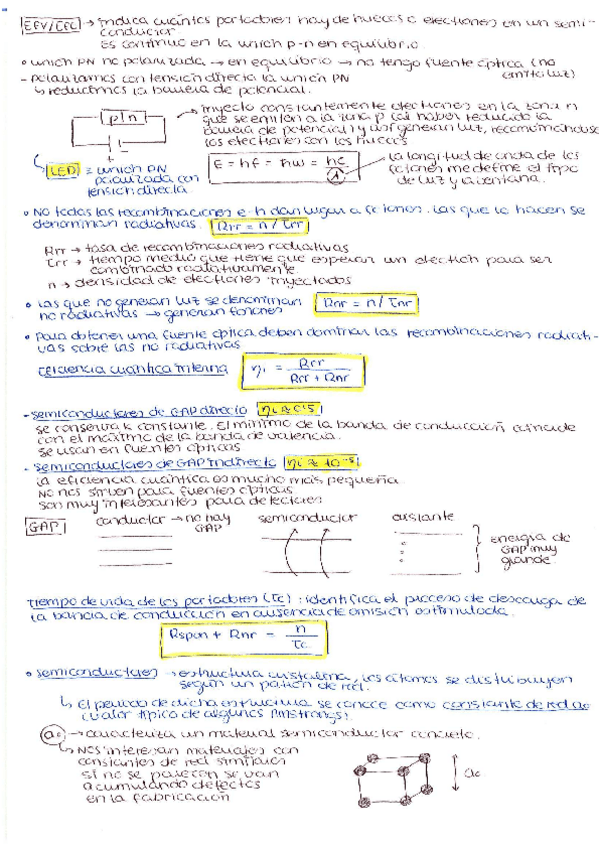 EFV/EFC → indica cuántos portadores hay de huecos o electrones en un semi-
conductor
es continuo en la unión p-n en equilibrio.
• unión PN no polarizada → en equilibrio → no tengo fuente óptica (no
emite luz)
- polarizamos con tensión directa la unión PN
↳ reducimos la barrera de potencial.
p|n
→ inyecto constantemente electrones en la zona n
que se a la zona p (al haber reducido la
barrera de potencial) y así generan luz, recombinándose
los electrones con los huecos
LED ≡ unión PN
polarizada con
tensión directa
E = hf = ħω = hc/λ
→ la longitud de onda de los
fotones me define el tipo
de luz y la ventana.
• No todas las recombinaciones e-h dan lugar a fotones. Las que lo hacen se
denominan radiativas. Rrr = n / τrr
Rrr → tasa de recombinaciones radiativas
τrr → tiempo medio que tiene que esperar un electrón para ser
combinado radiativamente.
n → densidad de electrones inyectados
• Las que no generan luz se denominan Rnr = n / τnr
no radiativas → generan fonones
• Para obtener una fuente óptica deben dominar las recombinaciones radiati-
vas sobre las no radiativas
eficiencia cuántica interna ηi = Rrr / (Rrr + Rnr)
- semiconductores de GAP directo ηi ≈ 0'5
se conserva k constante. El mínimo de la banda de conducción coincide
con el máximo de la banda de valencia.
se usan en fuentes ópticas
- semiconductores de GAP indirecto ηi ≈ 10⁻⁵
la eficiencia cuántica es mucho más pequeña.
No nos sirven para fuentes ópticas
son muy interesantes para detectores
GAP conductor → no hay GAP semiconductor aislante
energía de
GAP muy
grande
tiempo de vida de los portadores (τc): identifica el proceso de descarga de
la banda de conducción en ausencia de emisión estimulada.
Rspon + Rnr = n/τc
• semiconductores → estructura cristalina, los átomos se distribuyen
según un patrón de red.
↳ El periodo de dicha estructura se conoce como constante de red a₀
(valor típico de algunos Amstrongs).
a₀ → caracteriza un material semiconductor concreto.
↳ Nos interesan materiales con
constantes de red similares
si no se parecen se van
acumulando defectos
en la fabricación
a₀